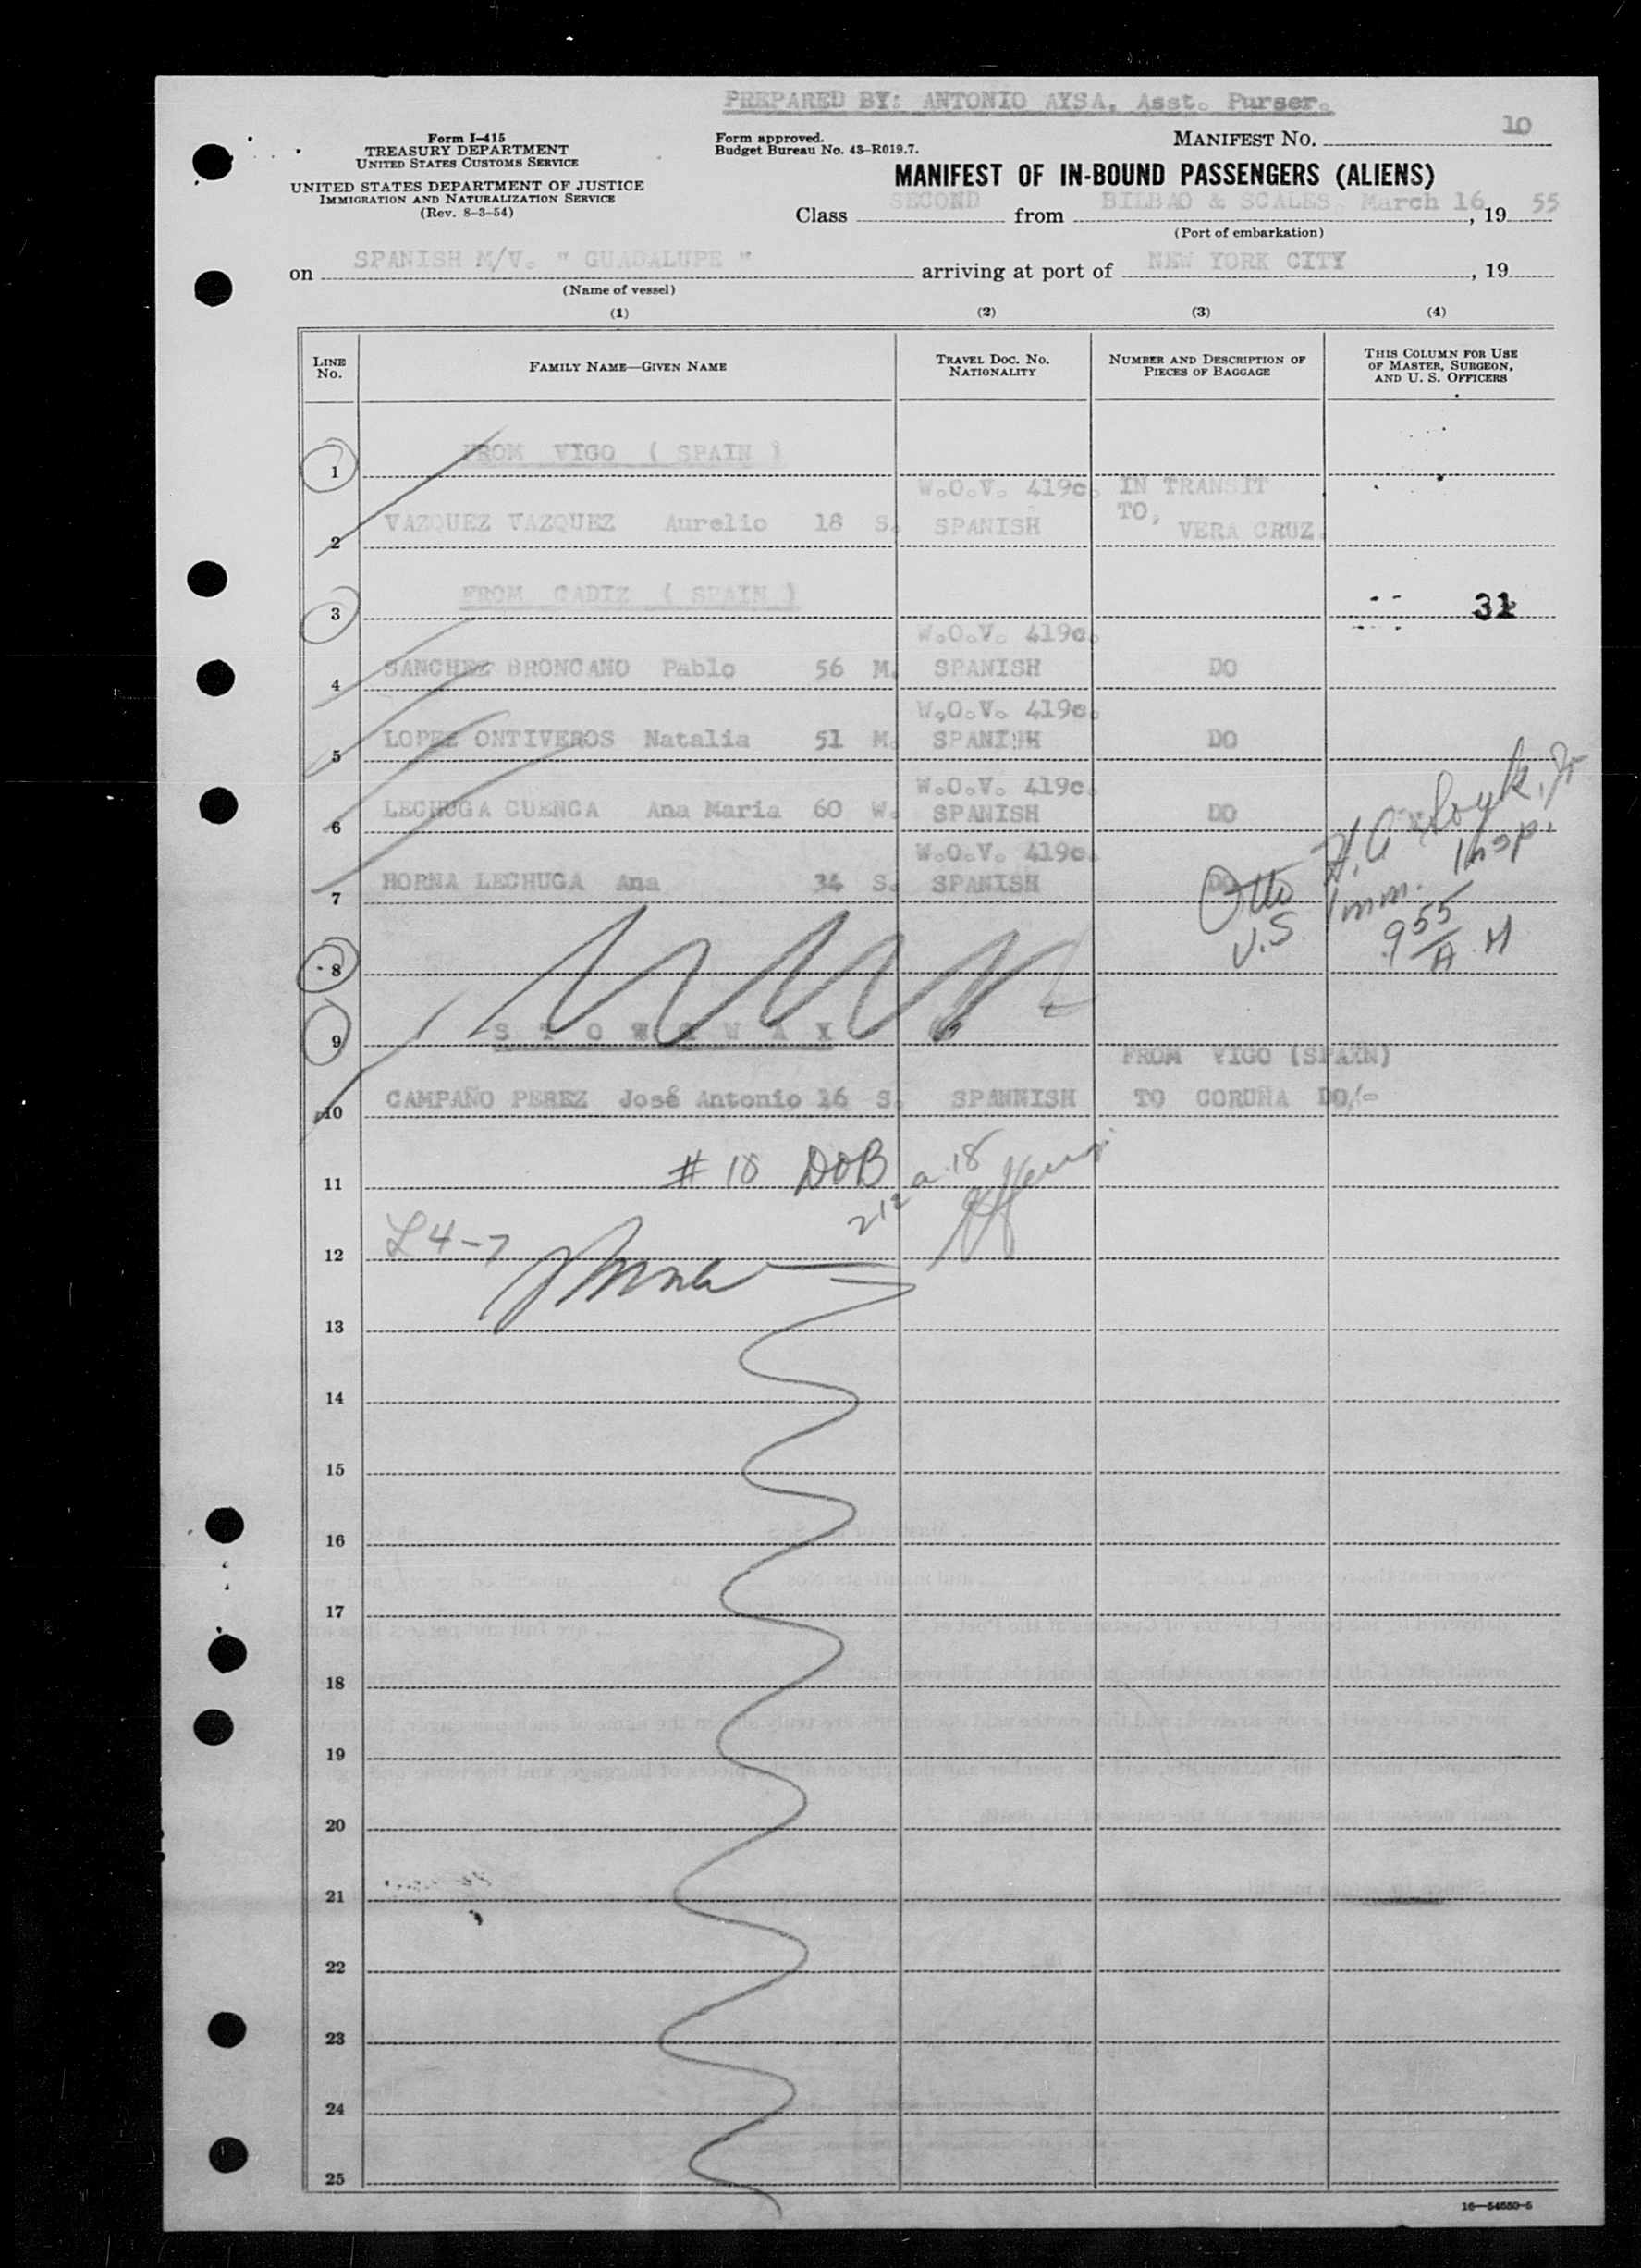 PREPARED BY: ANTONIO AYSA, Asst. Purser.
Form I-415
TREASURY DEPARTMENT
UNITED STATES CUSTOMS SERVICE
UNITED STATES DEPARTMENT OF JUSTICE
IMMIGRATION AND NATURALIZATION SERVICE
(Rev. 8-3-54)
Form approved.
Budget Bureau No. 43-R019.7.
MANIFEST NO. 10
MANIFEST OF IN-BOUND PASSENGERS (ALIENS)
Class SECOND from BILBAO & SCALES. March 16, 19 55
(Port of embarkation)
on SPANISH M/V. " GUADALUPE " arriving at port of NEW YORK CITY, 19
(Name of vessel)
(1) (2) (3) (4)
LINE NO. FAMILY NAME—GIVEN NAME TRAVEL DOC. NO. NATIONALITY NUMBER AND DESCRIPTION OF PIECES OF BAGGAGE THIS COLUMN FOR USE OF MASTER, SURGEON, AND U. S. OFFICERS
1 FROM VIGO ( SPAIN )
W.O.V. 419c. IN TRANSIT
2 VAZQUEZ VAZQUEZ Aurelio 18 S. SPANISH TO, VERA CRUZ.
3 FROM CADIZ ( SPAIN ) 31
W.O.V. 419c.
4 SANCHEZ BRONCANO Pablo 56 M. SPANISH DO
W.O.V. 419c.
5 LOPEZ ONTIVEROS Natalia 51 M. SPANISH DO
W.O.V. 419c.
6 LECHUGA CUENCA Ana Maria 60 W. SPANISH DO
W.O.V. 419c.
7 HORNA LECHUGA Ana 34 S. SPANISH DO
Otto H. A
U.S. Imm. Insp.
9 55 A.M
8
9 S T O W A W A Y
FROM VIGO (SPAIN)
10 CAMPAÑO PEREZ José Antonio 16 S. SPANNISH TO CORUÑA DO/-
# 10 DOB
11
L 4-7
12
13
14
15
16
17
18
19
20
21
22
23
24
25
16—54650-5